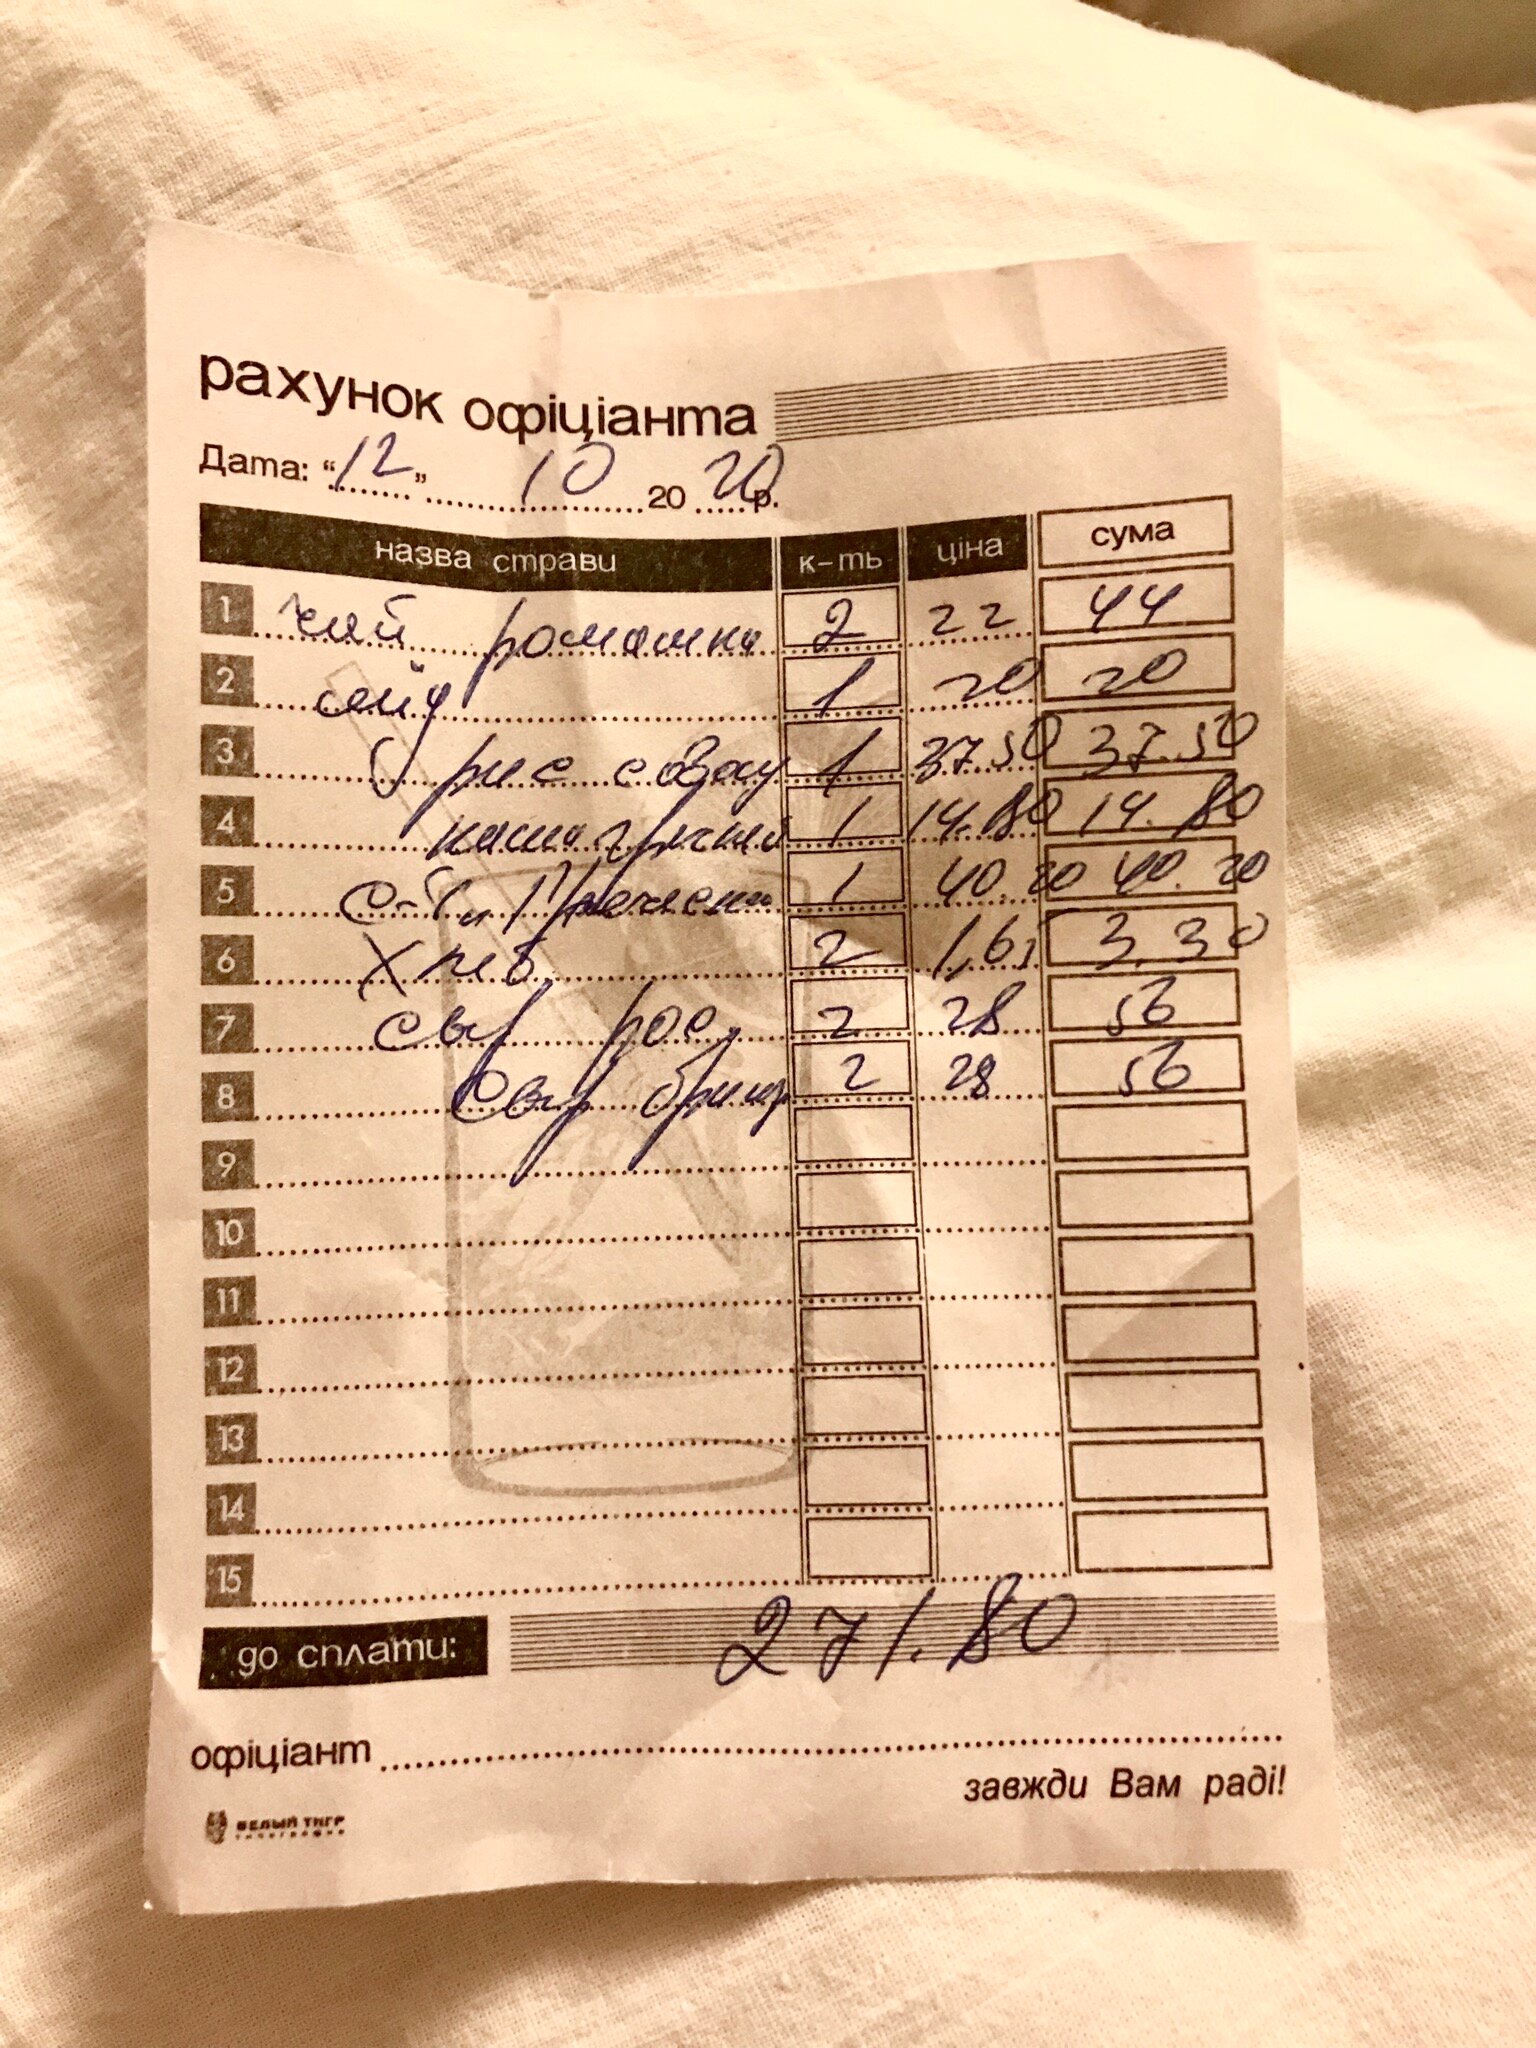 рахунок офіціанта
Дата: "12" 10 2020р.
назва страви к-ть ціна сума
1 чай ромашка 2 22 44
2 1 20 20
3 рис с овощ 1 37.50 37.50
4 каша 1 14.80 14.80
5 с-т Греческий 1 40.20 40.20
6 Хлеб 2 1,65 3.30
7 Сыр рос. 2 28 56
8 Сыр 2 28 56
9
10
11
12
13
14
15
до сплати: 271.80
офіціант
завжди Вам раді!
БЕЛЫЙ ТИГР
ТИПОГРАФИЯ